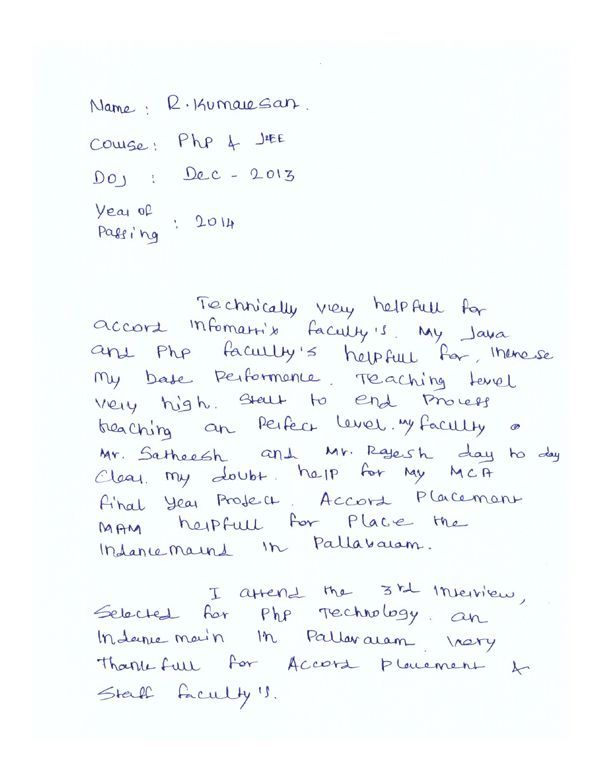 Name : R. Kumaresan.
Course : Php & J2EE
DOJ : Dec - 2013
Year of
Passing : 2014
Technically very helpfull for
accord infomatrix faculty's. My Java
and Php faculty's helpfull for, increse
my base Performence. Teaching level
very high. Start to end Process
teaching an Perfect level. My faculty
Mr. Satheesh and Mr. Rajesh day to day
Clear my doubt. help for my MCA
final year Project. Accord Placement
MAM helpfull for Place the
in Pallavaram.
I attend the 3rd Interview,
Selected for Php Technology. an
in Pallavaram very
Thankfull for Accord Placement &
Staff faculty's.